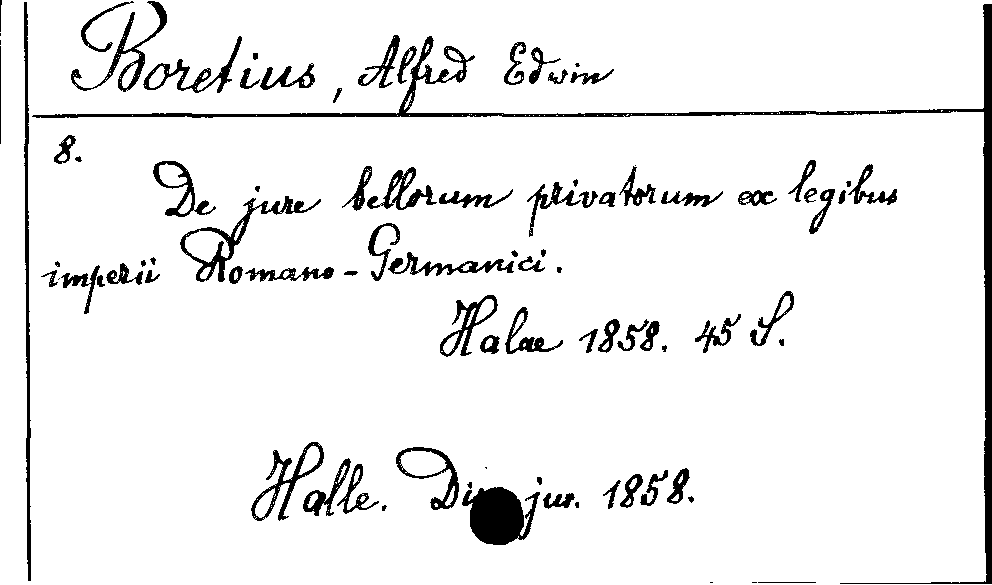 Boretius, Alfred Edwin
8.
De jure bellorum privatorum ex legibus
imperii Romano-Germanici.
Halae 1858. 45 S.
Halle. jur. 1858.